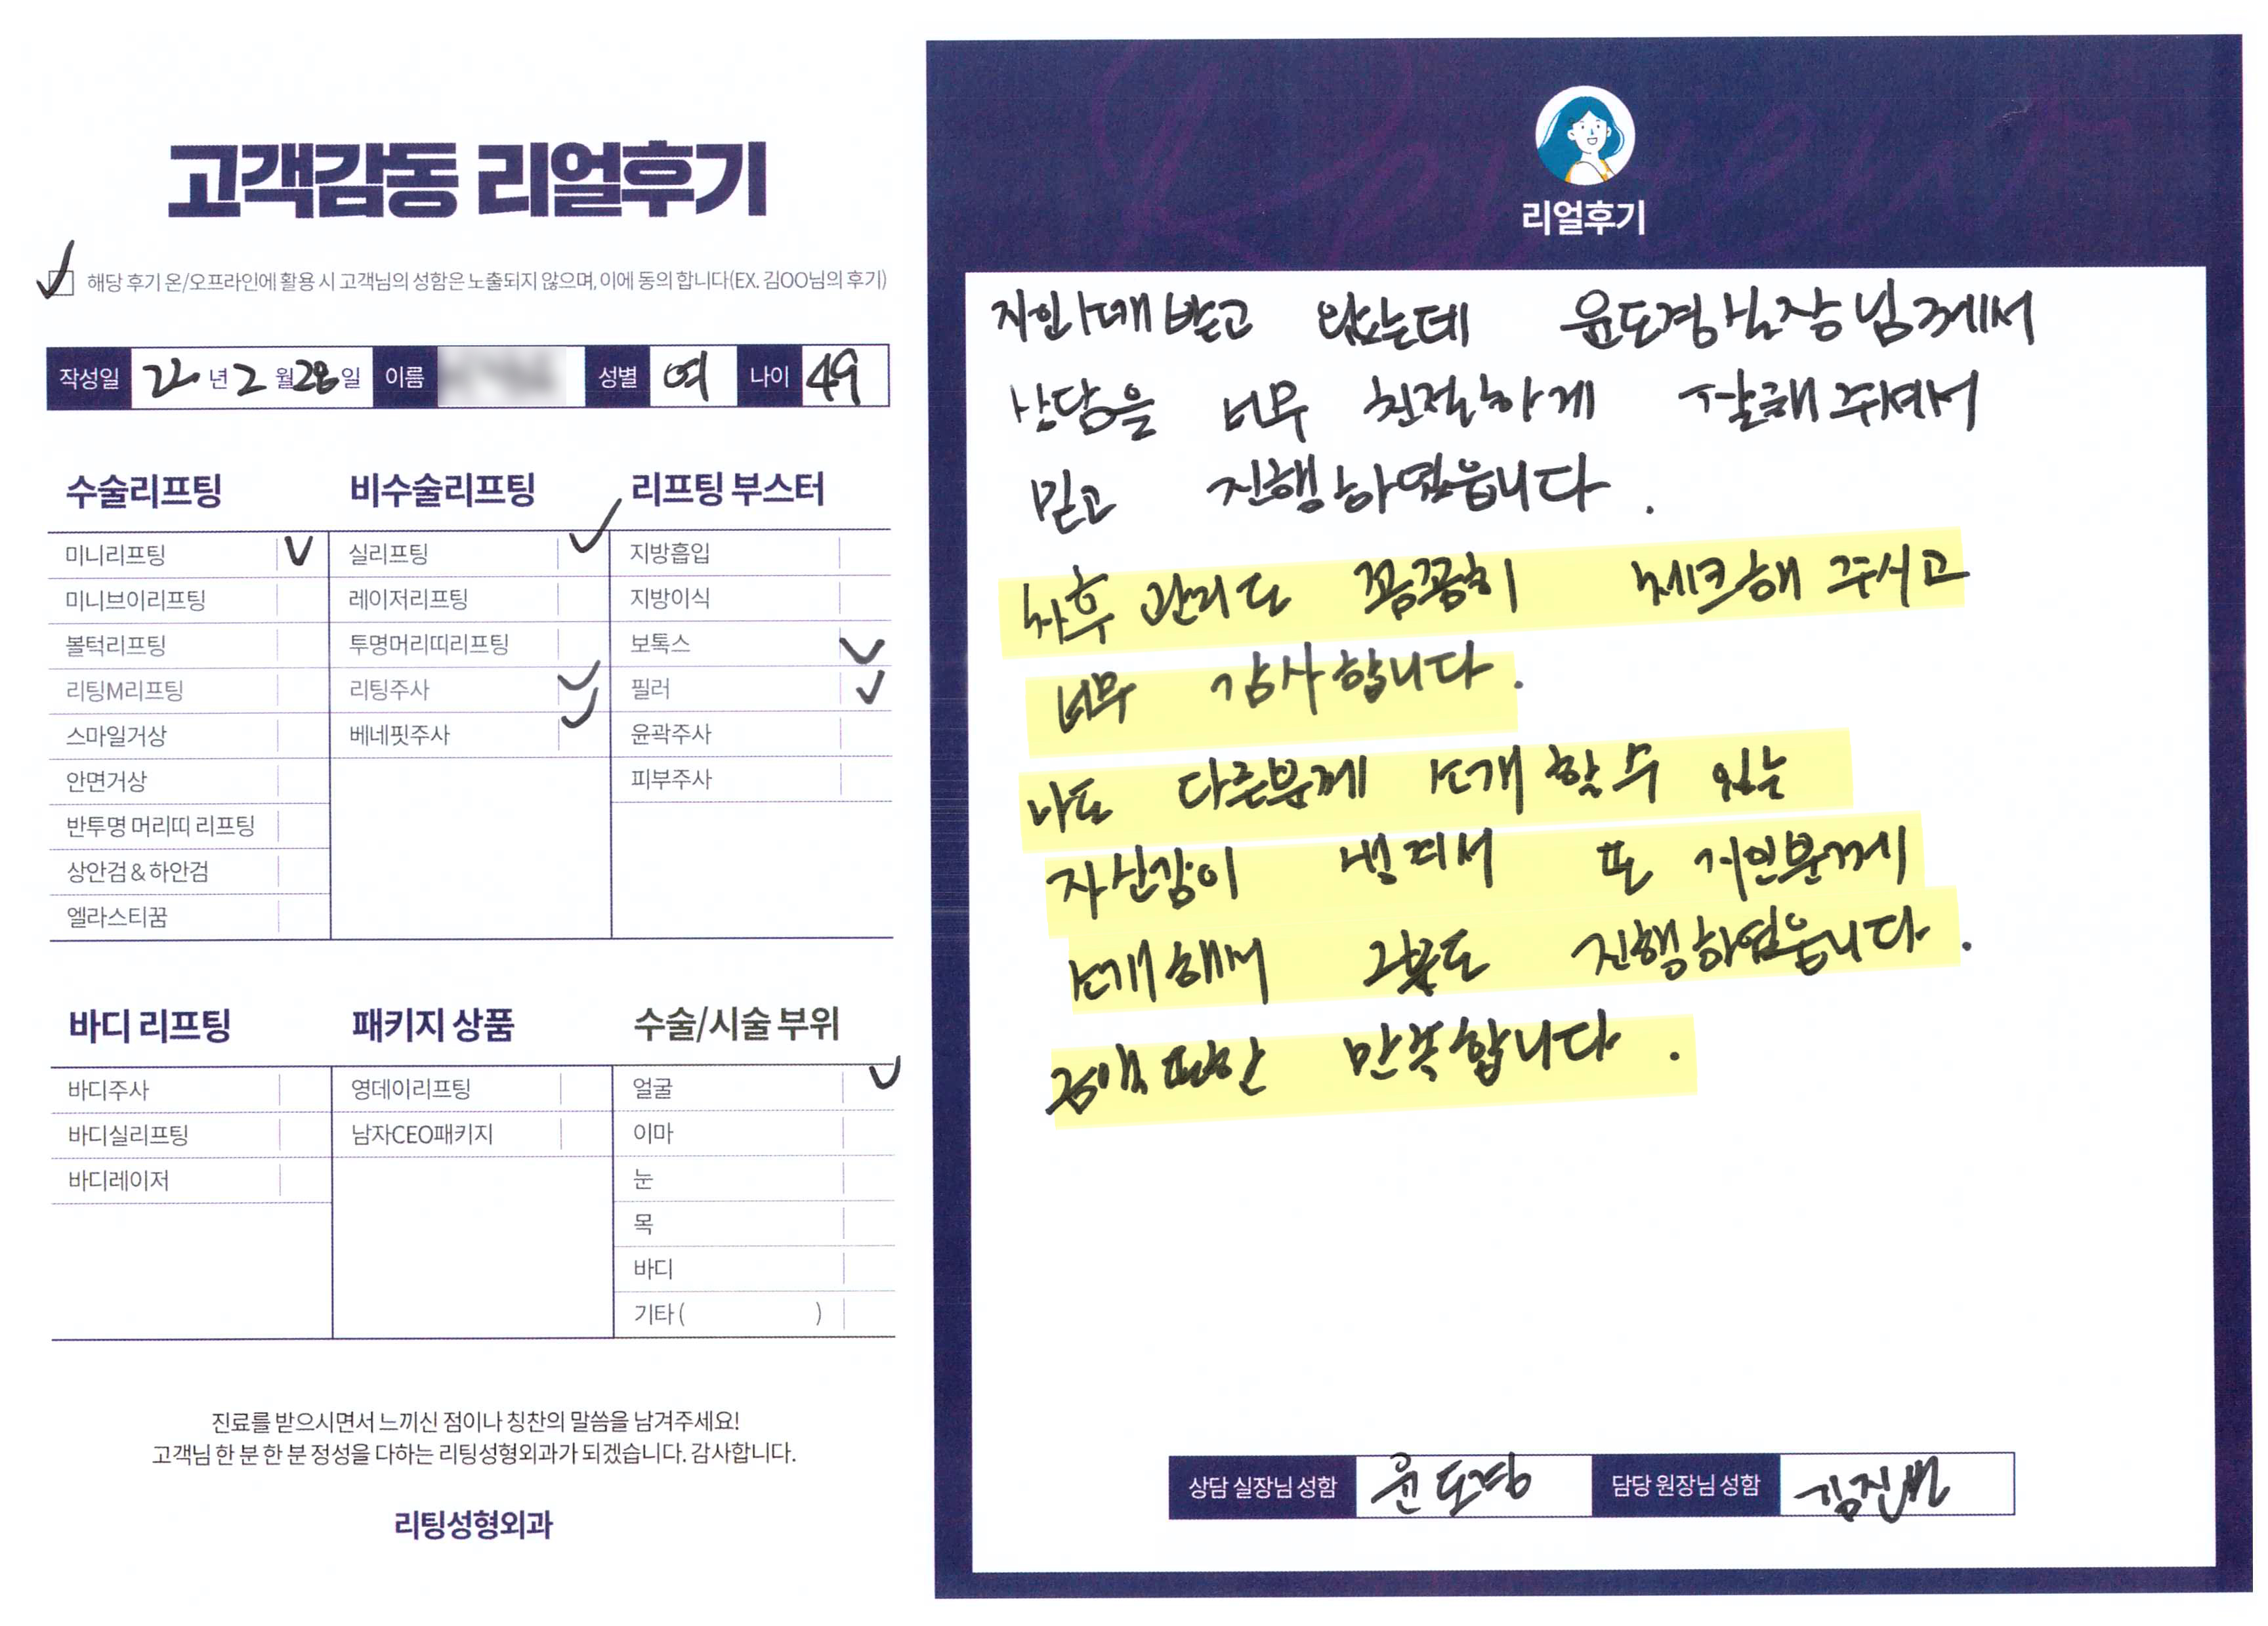 고객감동 리얼후기
해당 후기 온/오프라인에 활용 시 고객님의 성함은 노출되지 않으며, 이에 동의 합니다(EX. 김OO님의 후기)
작성일 22년 2월 28일 이름 성별 여 나이 49
수술리프팅
미니리프팅
미니브이리프팅
볼턱리프팅
리팅M리프팅
스마일거상
안면거상
반투명 머리띠 리프팅
상안검 & 하안검
엘라스티꿈
비수술리프팅
실리프팅
레이저리프팅
투명머리띠리프팅
리팅주사
베네핏주사
리프팅 부스터
지방흡입
지방이식
보톡스
필러
윤곽주사
피부주사
바디 리프팅
바디주사
바디실리프팅
바디레이저
패키지 상품
영데이리프팅
남자CEO패키지
수술/시술 부위
얼굴
이마
눈
목
바디
기타 ( )
진료를 받으시면서 느끼신 점이나 칭찬의 말씀을 남겨주세요!
고객님 한 분 한 분 정성을 다하는 리팅성형외과가 되겠습니다. 감사합니다.
리팅성형외과
리얼후기
지인소개 받고 왔는데 윤도경실장님께서
상담을 너무 친절하게 잘해주셔서
믿고 진행하였읍니다.
사후관리도 꼼꼼히 체크해 주시고
너무 감사합니다.
나도 다른분께 소개할수 있는
자신감이 생겨서 또 지인분께
소개해서 그분도 진행하였읍니다.
만족합니다.
상담 실장님 성함 윤도경 담당 원장님 성함